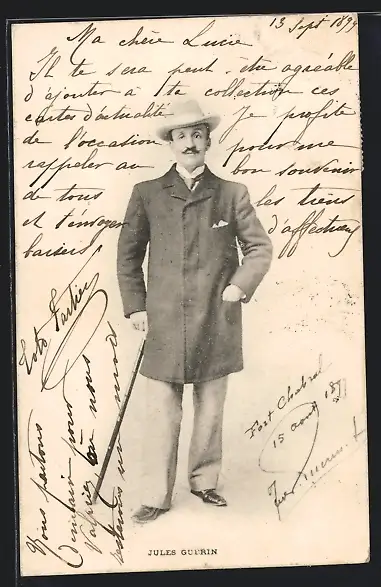 13 Sept 1899
Ma chère Lucie
Il te sera peut-être agréable
d'ajouter à ta collection ces
cartes d'actualité. Je profite
de l'occasion pour me
rappeler au bon souvenir
de tous les tiens
et t'envoyer d'affectueux
baisers
Nous partons
demain pour
où nous
un mois
Fort Chabrol
15 août 1899
Jules Guérin
JULES GUÉRIN